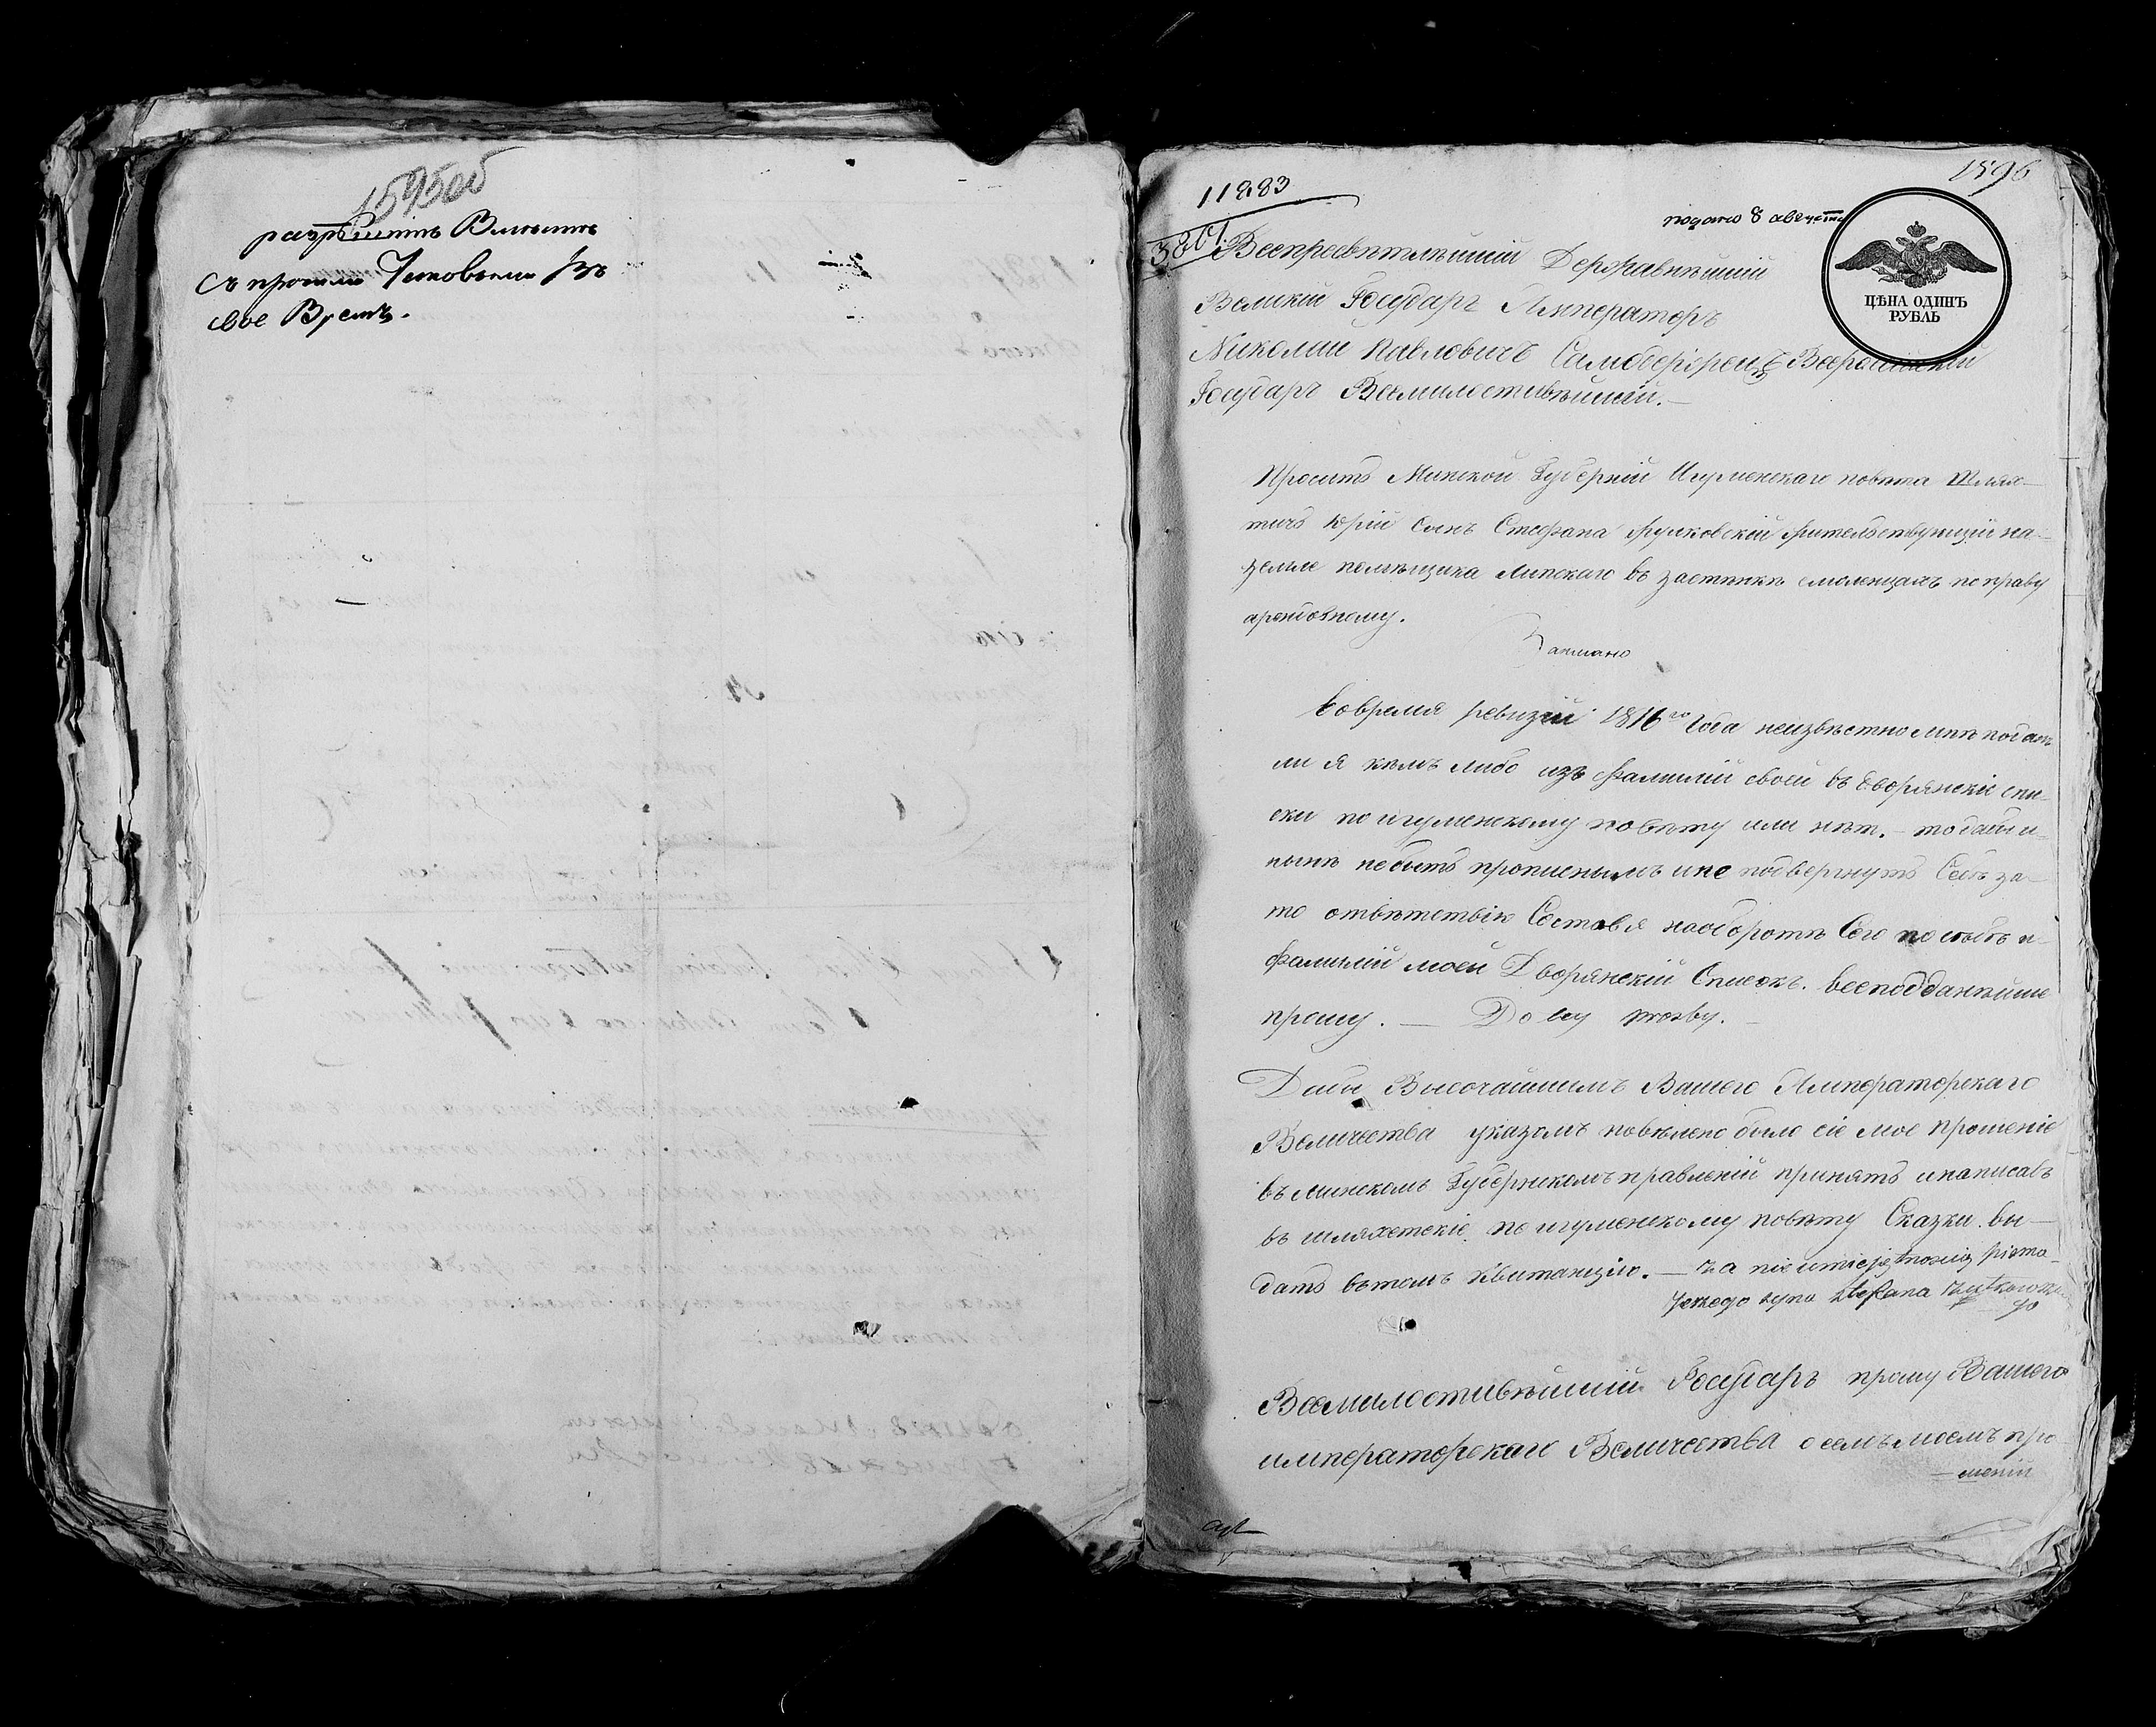 1595об
разрѣшить Вмѣстѣ
съ прочими Таковыми Въ
свое Время.
1596
11883
3861
подано 8 августа
ЦѢНА ОДИНЪ
РУБЛЬ
Всепресвѣтлѣйшій Державнѣйшій
Великій Государь Императоръ
Николай Павловичъ Самодержецъ Всероссійскій
Государь Всемилостивѣйшій.—
Проситъ Минской Губерніи Игуменскаго повѣта Шлях-
тичъ Юрій Сынъ Стефана жительствующій на
земле помѣщика Липскаго въ застѣнкѣ смоленцахъ по праву
арендовному.
Вовремя ревизіи 1816го Года неизвѣстно мнѣ поданъ
ли я кѣмъ либо изъ фамиліи своей въ дворянскіе спи-
ски по игуменскому повѣту или нѣт.— то дабы и
нынѣ небыть прописнымъ и не подвергнуть Себѣ за
то отвѣтствію Составя наоборотѣ Сего по себѣ и
фамиліи моей Дворянскій Списокъ. всеподданнѣйше
прошу.— Do tey prozby.—
Дабы Высочайшимъ Вашего Императорскаго
Величества указомъ повѣлено было сіе мое прошеніе
въ минскомъ Губернскомъ правленіи принять и написавъ
въ шляхетскіе по игуменскому повѣту Сказки. вы-
дать вътомъ Квитанцію.— za nieumiejętnością pisma
Jerzego syna Stefana
Всемилостивѣйшій Государь прошу Вашего
императорскаго Величества о семъ моемъ про-
шеніи